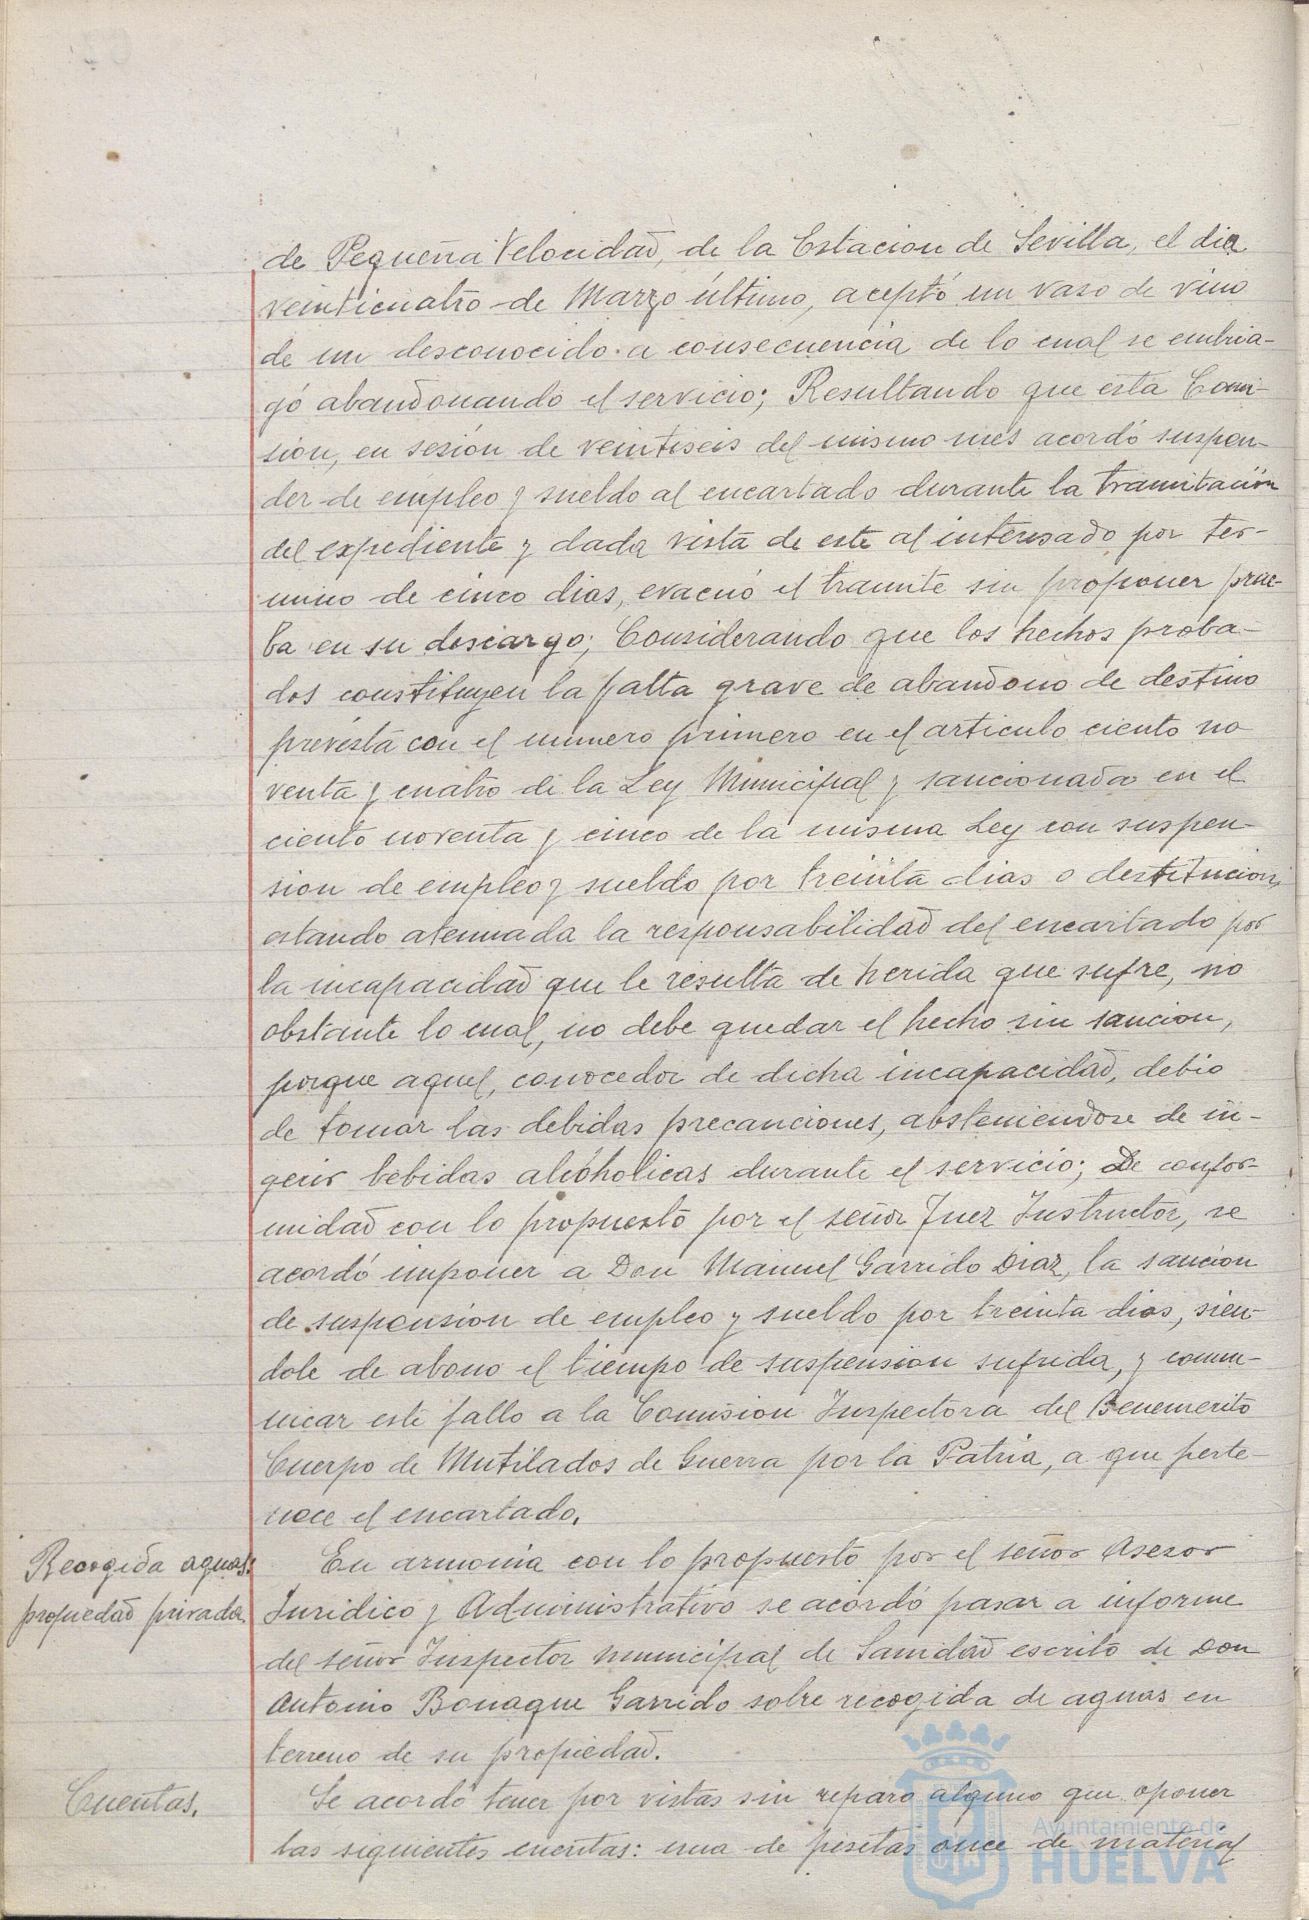 de Pequeña Velocidad, de la Estacion de Sevilla, el dia
veinticuatro de Marzo último, aceptó un vaso de vino
de un desconocido a consecuencia de lo cual se embria-
gó abandonando el servicio; Resultando que esta Comi-
sion, en sesion de veintiseis del mismo mes acordó suspen-
der de empleo y sueldo al encartado durante la tramitación
del expediente y dada vista de este al interesado por ter-
mino de cinco dias, evacuó el tramite sin proponer prue-
ba en su descargo; Considerando que los hechos proba-
dos constituyen la falta grave de abandono de destino
prevista con el numero primero en el articulo ciento no
venta y cuatro de la Ley Municipal y sancionada en el
ciento noventa y cinco de la misma Ley con suspen-
sion de empleo y sueldo por treinta dias o destitucion,
estando atenuada la responsabilidad del encartado por
la incapacidad que le resulta de herida que sufre, no
obstante lo cual, no debe quedar el hecho sin sancion,
porque aquel, conocedor de dicha incapacidad, debio
de tomar las debidas precauciones, absteniendose de in-
gerir bebidas alcoholicas durante el servicio; De confor-
midad con lo propuesto por el señor Juez Instructor, se
acordó imponer a Don Manuel Garrido Diaz, la sancion
de suspension de empleo y sueldo por treinta dias, sien-
dole de abono el tiempo de suspension sufrida, y comu-
nicar este fallo a la Comision Inspectora del Benemerito
Cuerpo de Mutilados de Guerra por la Patria, a que perte-
nece el encartado.
Recogida aguas: En armonia con lo propuesto por el señor Asesor
propiedad privada. Juridico y Administrativo se acordó pasar a informe
del señor Inspector municipal de Sanidad escrito de Don
Antonio Bonaque Garrido sobre recogida de aguas en
terreno de su propiedad.
Cuentas. Se acordó tener por vistas sin reparo alguno que oponer
las siguientes cuentas: una de pesetas once de material
Ayuntamiento de
HUELVA